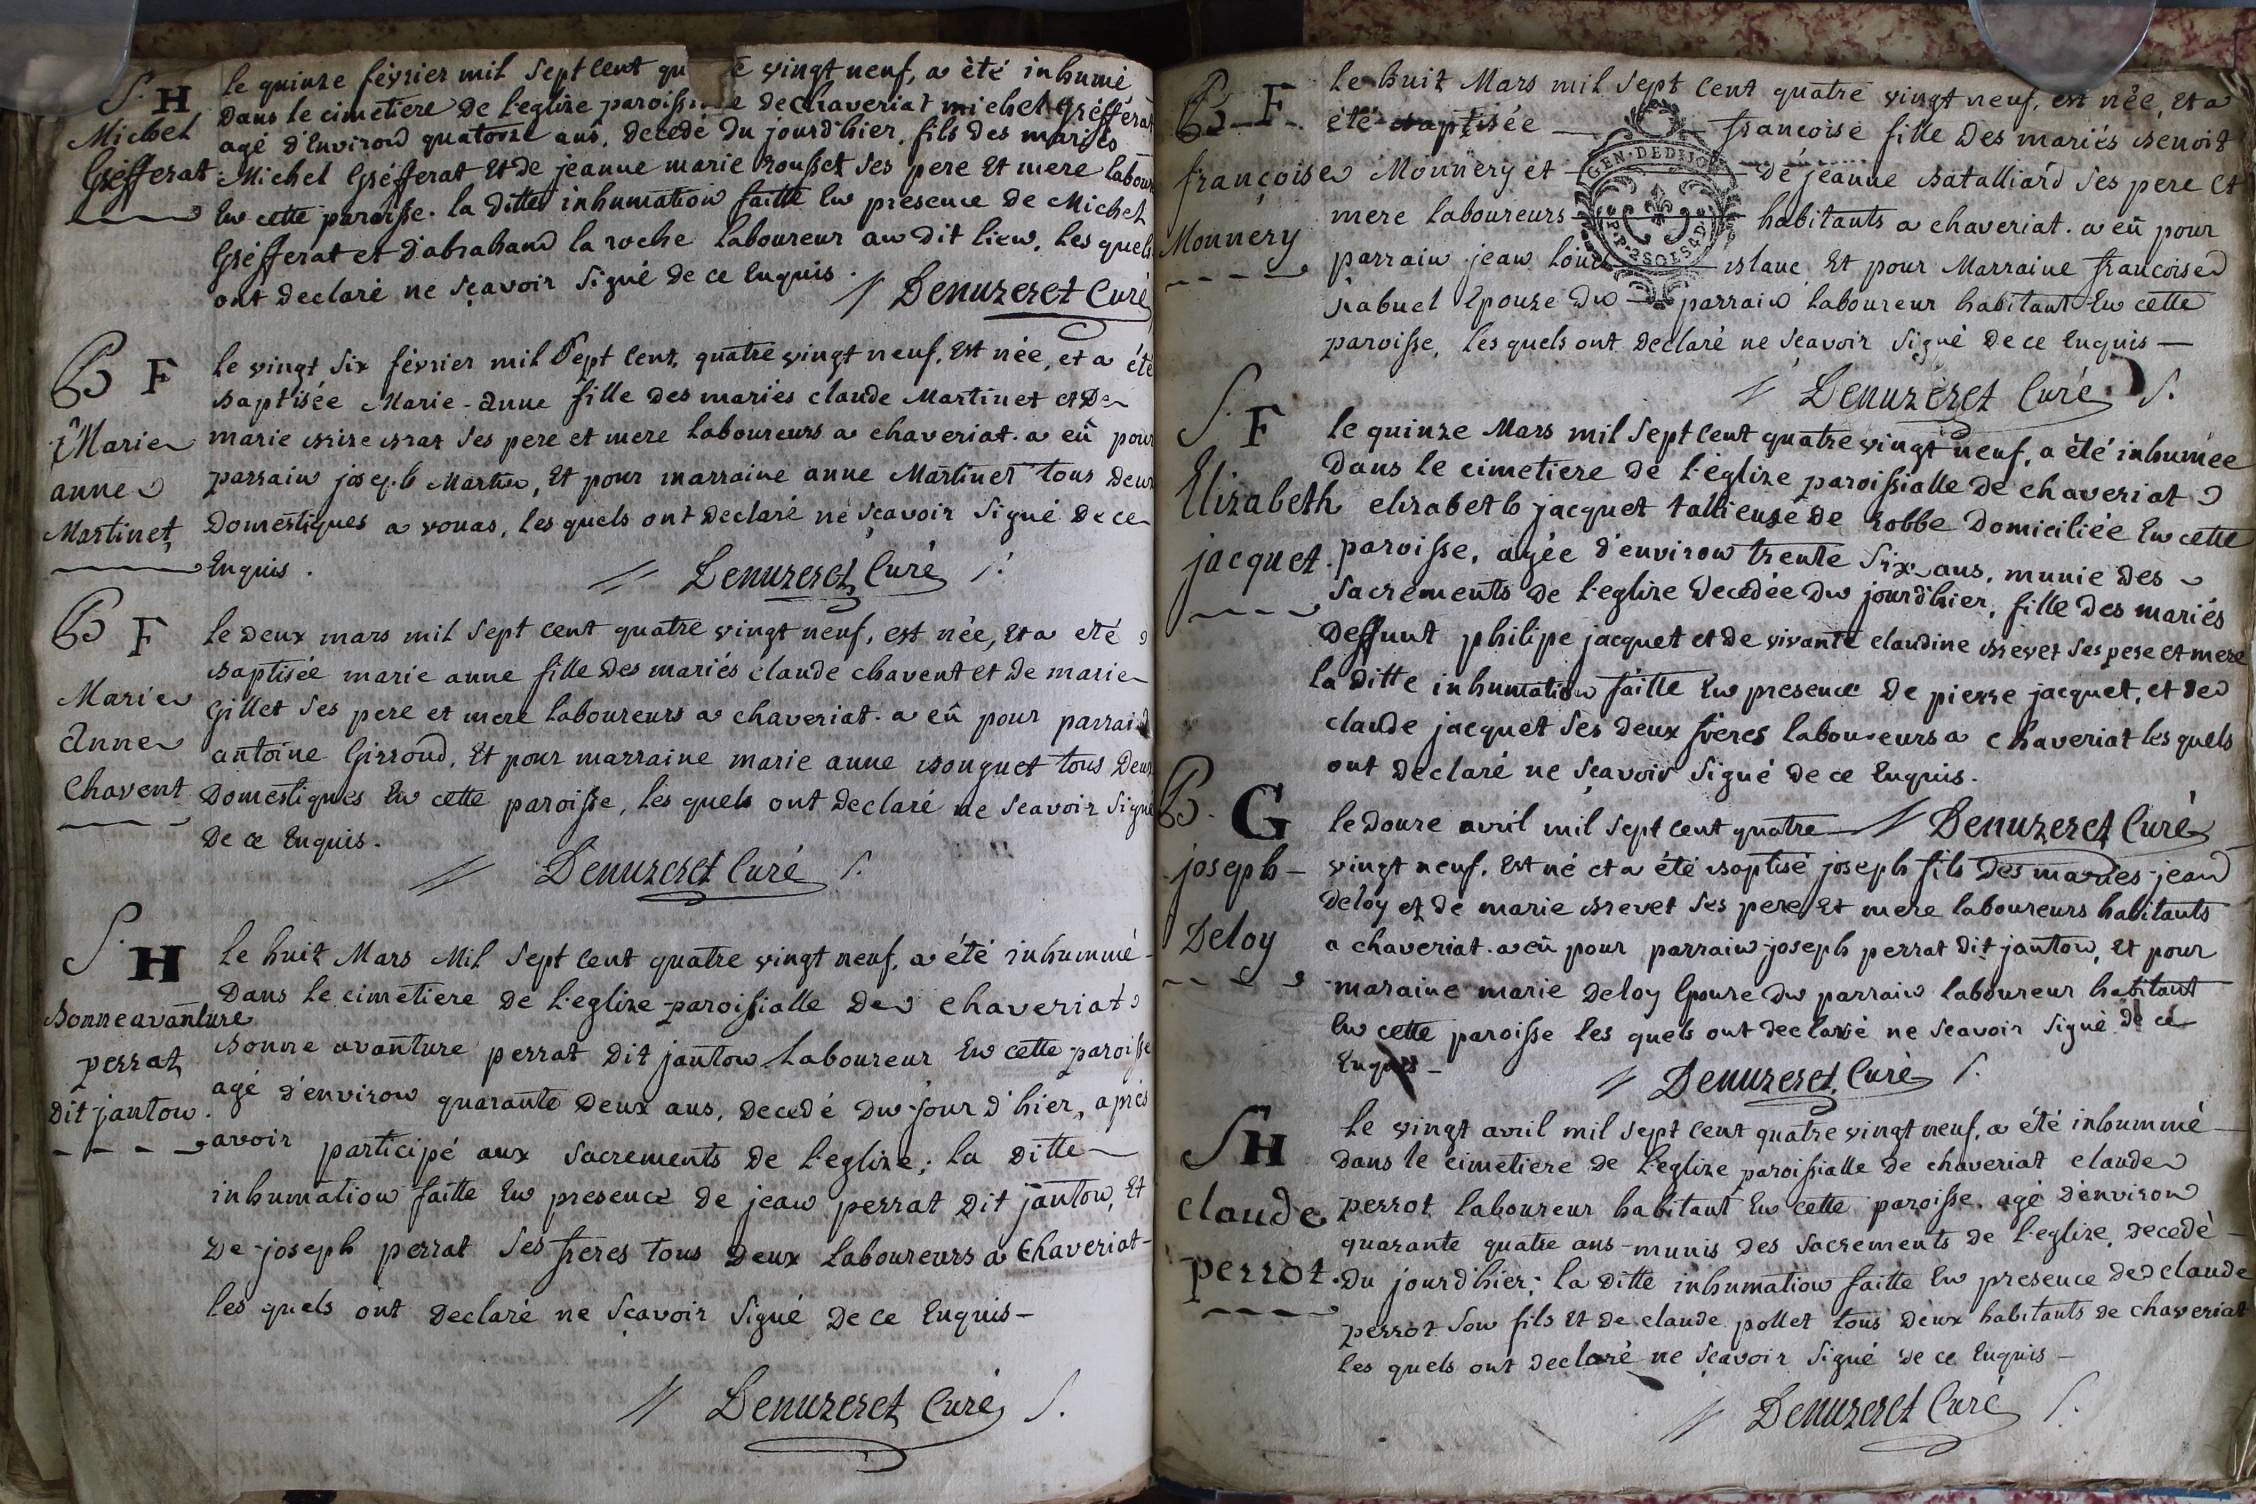 S. H
Michel
Gréfferat
le quinze février mil Sept Cent qu e vingt neuf, a été inhumé
Dans le cimetiere De l'eglize paroissi e de chaveriat michel Gréfférat
agé d'Environ quatorze ans, decedé Du jourd'hier, fils des mariés
Michel Gréfferat Et de jeanne marie rousset Ses pere Et mere labour
En cette paroisse. la Ditte inhumation faitte En presence de Michel
Gréfferat et D'abraham la roche laboureur au Dit lieu, Les quels
ont Declaré ne Sçavoir Signé de ce Enquis.
// Denuzeret Curé
B F
Marie
anne
Martinet
le vingt Six février mil Sept Cent, quatre vingt neuf, Est née, et a été
Baptisée Marie-Anne fille des mariés claude Martinet et De
marie Ses pere et mere laboureurs a chaveriat. a eû pour
parrain joseph Martin, Et pour marraine anne Martinet tous Deux
Domestiques a vonas, les quels ont Declaré ne Sçavoir Signé De ce
Enquis.
// Denuzeret Curé S.
B F
Marie
Anne
Chavent
le Deux mars mil Sept Cent quatre vingt neuf, est née, Et a eté
Baptisée marie anne fille Des mariés claude chavent et De marie
Gillet Ses pere et mere laboureurs a chaveriat. a eû pour parrain
antoine Girroud, Et pour marraine marie anne Bonguet tous Deux
Domestiques En cette paroisse, les quels ont Declaré ne Sçavoir Signé
De ce Enquis.
// Denuzeret Curé S.
S. H
Bonneavanture
perrat
Dit janton.
le huit Mars Mil Sept Cent quatre vingt neuf, a été inhummé
Dans le cimetiere De l'eglize paroissialle De chaveriat
Bonne avanture perrat Dit janton Laboureur En cette paroisse
agé d'environ quarante Deux ans, Decedé Du jour d'hier, aprés
avoir participé aux Sacrements De l'eglize; la Ditte
inhumation faitte En presence De jean perrat Dit janton, Et
De joseph perrat Ses freres tous Deux laboureurs a chaveriat
les quels ont Declaré ne Sçavoir Signé De ce Enquis
// Denuzeret Curé S.
B F
françoise
Monnery
le huit Mars mil Sept Cent quatre vingt neuf, est née, Et a
été Baptisée françoise fille Des mariés Benoit
Monnery et De jeanne Batalliard Ses pere Et
mere laboureurs habitants a chaveriat. a eû pour
parrain jean Blanc Et pour Marraine françoise
rabuel Epouze Du parrain laboureur habitant En cette
paroisse, les quels ont Declaré ne Sçavoir Signé De ce Enquis
GEN. DE DIJON
SOLS
// Denuzeret Curé S.
S. F
Elizabeth
jacquet.
le quinze Mars mil Sept Cent quatre vingt neuf, a été inhumée
Dans le cimetiere de l'eglize paroissialle De chaveriat
elizabeth jacquet tallieuse De robbe Domiciliée En cette
paroisse, agée d'environ trente Six ans, munie Des
Sacrements De l'eglize Decedée Du jourd'hier, fille Des mariés
Deffunt philipe jacquet et de vivante claudine Brevet Ses pere et mere
la Ditte inhumation faitte En presence De pierre jacquet, et De
claude jacquet Ses Deux freres laboureurs a chaveriat les quels
ont Declaré ne Sçavoir Signé De ce Enquis.
B. G
joseph
Deloy
le Douze avril mil Sept Cent quatre // Denuzeret Curé
vingt neuf, Est né et a été Baptisé joseph fils Des mariés jean
Deloy et De marie Brevet Ses pere Et mere laboureurs habitants
a chaveriat. a eû pour parrain joseph perrat Dit janton, Et pour
maraine marie Deloy Epouze Du parrain laboureur habitant
En cette paroisse les quels ont declaré ne Sçavoir Signé De ce
Enquis
// Denuzeret Curé S.
S H
claude
perrot.
le vingt avril mil Sept Cent quatre vingt neuf, a été inhummé
Dans le cimetiere De l'eglize paroissialle De chaveriat claude
perrot laboureur habitant En cette paroisse. agé d'environ
quarante quatre ans munis des Sacrements De l'eglize, Decedé
Du jourd'hier; la Ditte inhumation faitte En presence De claude
perrot Son fils Et De claude pollet tous Deux habitants De chaveriat
les quels ont declaré ne Sçavoir Signé De ce Enquis
// Denuzeret Curé S.